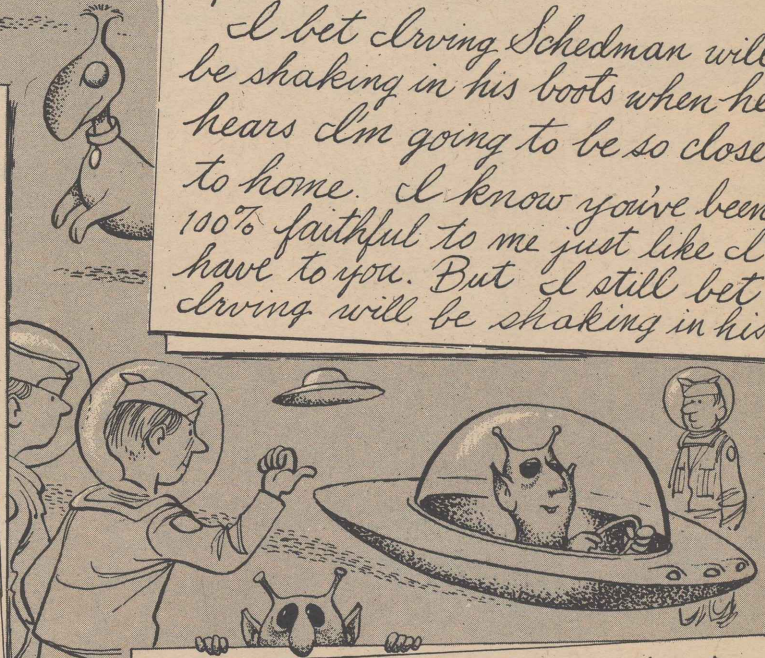 I bet Irving Schedman will
be shaking in his boots when he
hears I'm going to be so close
to home. I know you've been
100% faithful to me just like I
have to you. But I still bet
Irving will be shaking in his